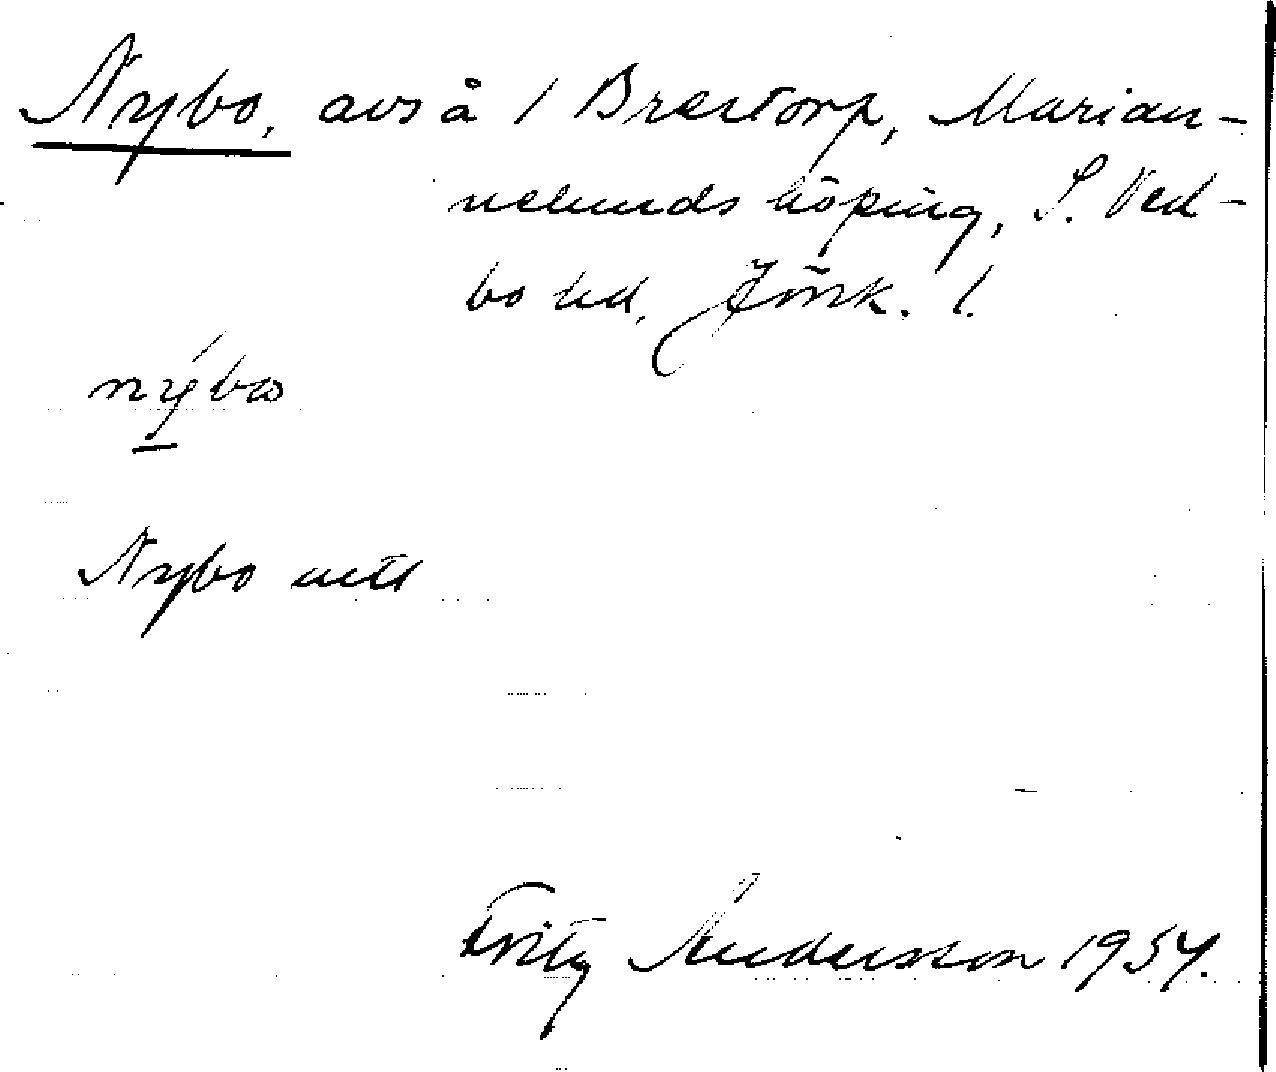 Nybo, avs å 1 Brestorp, Marian-
nelunds köping, S. Ved-
bo hd, Jönk. l.
nýbo
Nybo nett
Fritz Andersson 1954.